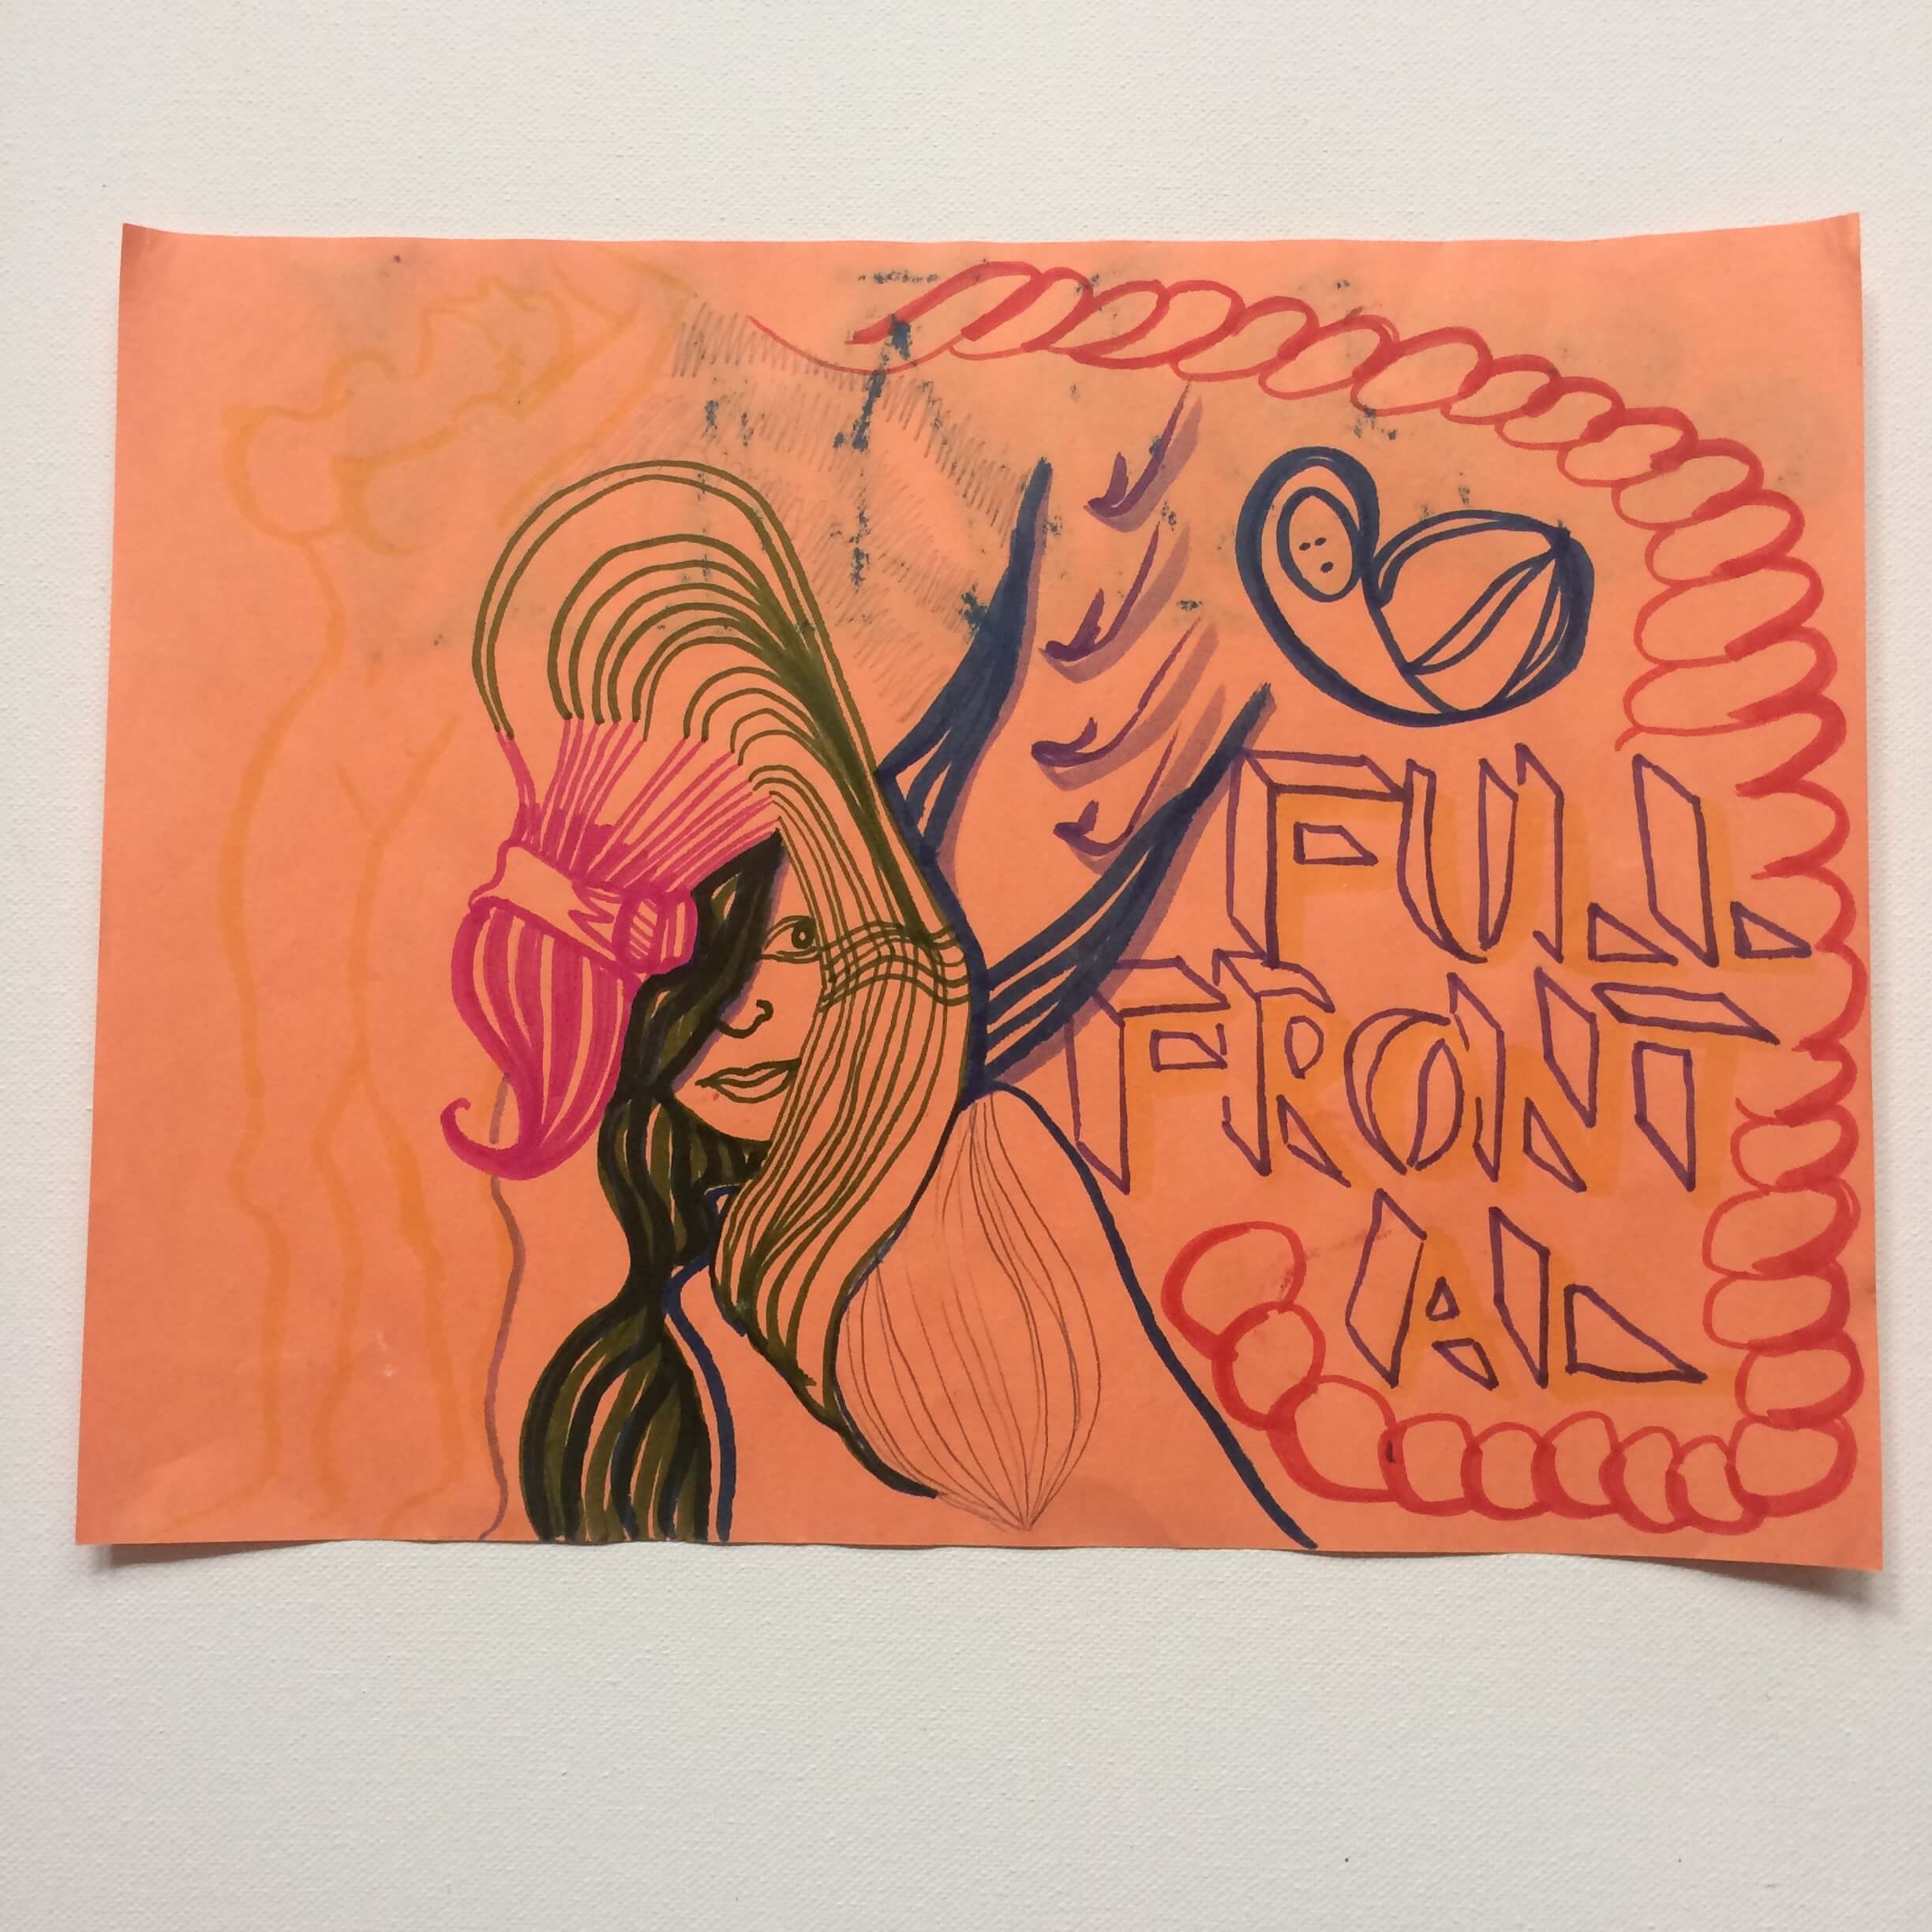 FULL
FRONT
AL